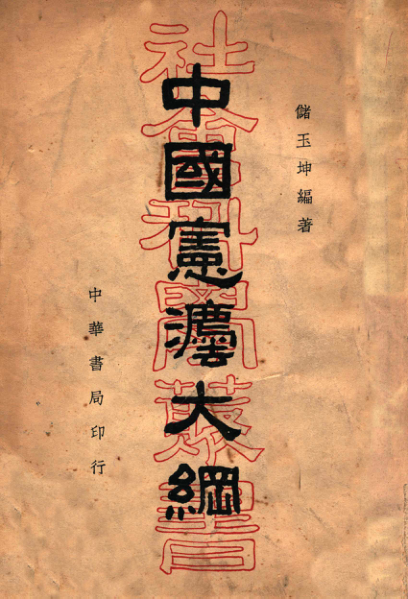 儲玉坤編著
社會科學叢書
中國憲灋大綱
中華書局印行